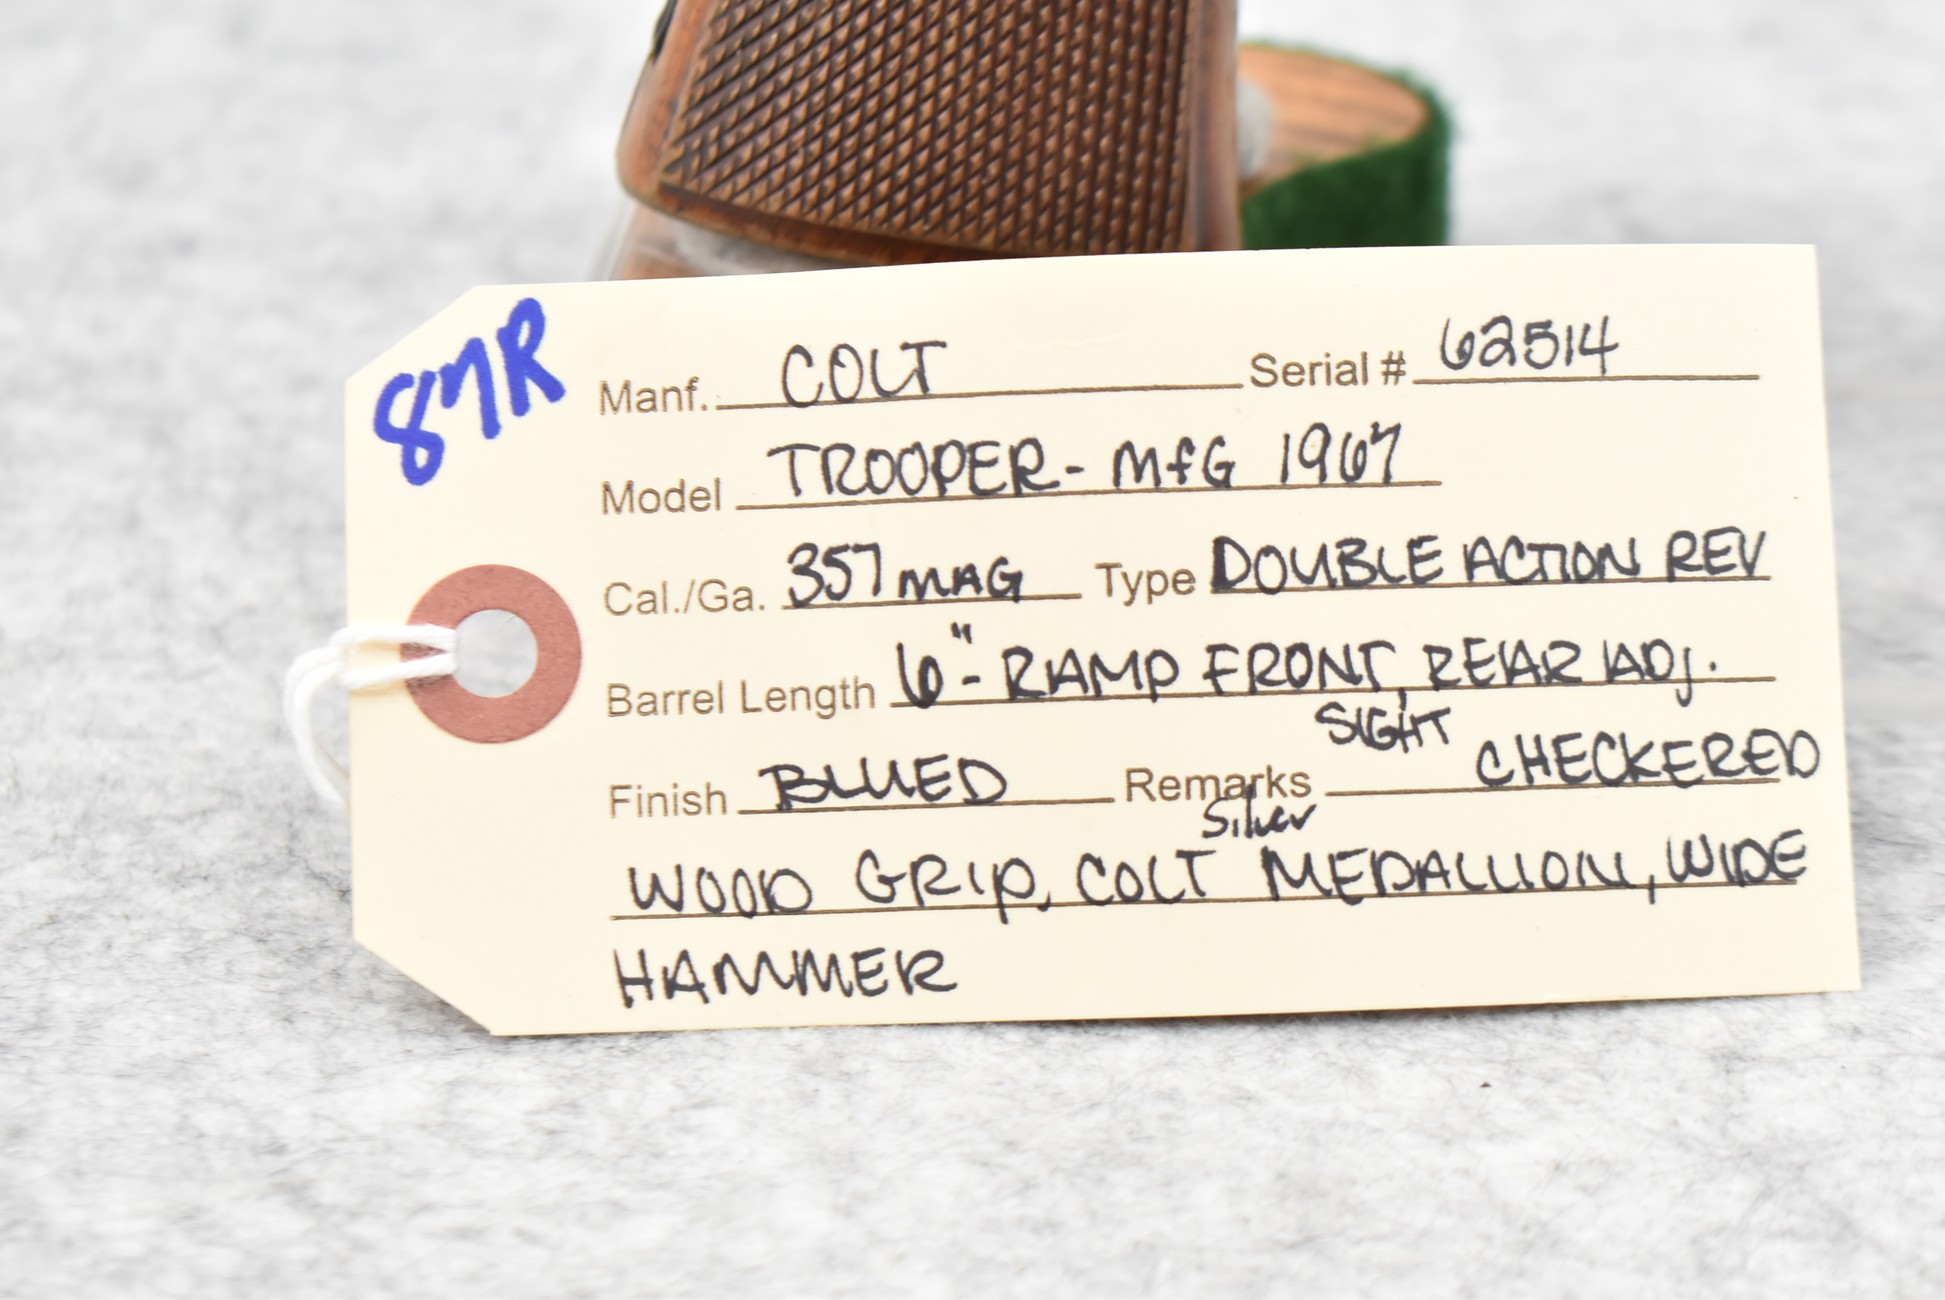 87R
Manf. COLT Serial # 62514
Model TROOPER - MFG 1967
Cal./Ga. 357 MAG Type DOUBLE ACTION REV
Barrel Length 6" - RAMP FRONT, REAR ADJ.
SIGHT
Finish BLUED Remarks CHECKERED
Silver
WOOD GRIP, COLT MEDALLION, WIDE
HAMMER